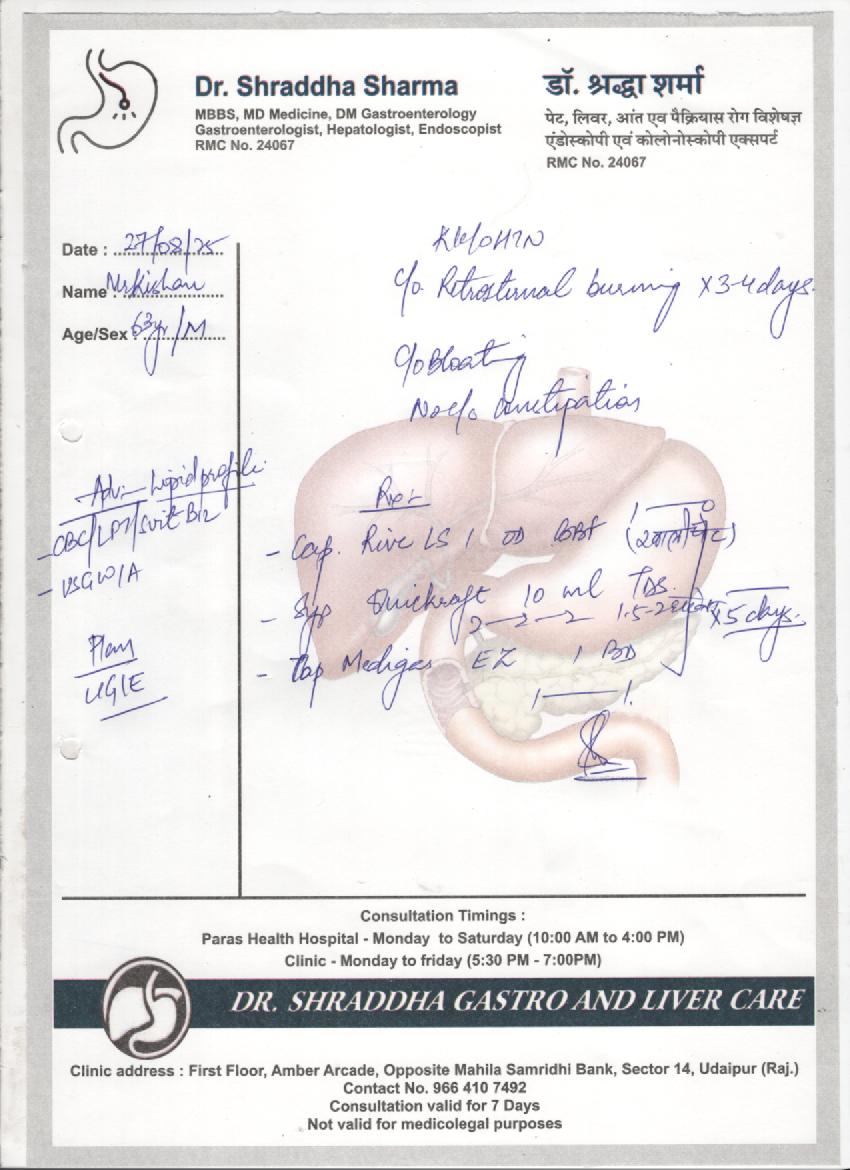 Dr. Shraddha Sharma
MBBS, MD Medicine, DM Gastroenterology
Gastroenterologist, Hepatologist, Endoscopist
RMC No. 24067
डॉ. श्रद्धा शर्मा
पेट, लिवर, आंत एव पैक्रियास रोग विशेषज्ञ
एंडोस्कोपी एवं कोलोनोस्कोपी एक्सपर्ट
RMC No. 24067
Date : 27/08/25
Name : Mr Kishan
Age/Sex : 63yr/M
K/c/o HTN
c/o Retrosternal burning x 3-4 days.
c/o Bloating
No c/o constipation
Adv:- Lipid profile
- CBC/LFT/S.vit B12
- USG W/A
Plan
UGIE
Rx:-
- Cap. LS 1 OD BBF (खाली पेट)
- Syp 10 ml TDS.
2-2-2 1.5-2
x 5 days.
- Cap EZ 1 BD
1 — 1.
Consultation Timings :
Paras Health Hospital - Monday to Saturday (10:00 AM to 4:00 PM)
Clinic - Monday to friday (5:30 PM - 7:00PM)
DR. SHRADDHA GASTRO AND LIVER CARE
Clinic address : First Floor, Amber Arcade, Opposite Mahila Samridhi Bank, Sector 14, Udaipur (Raj.)
Contact No. 966 410 7492
Consultation valid for 7 Days
Not valid for medicolegal purposes